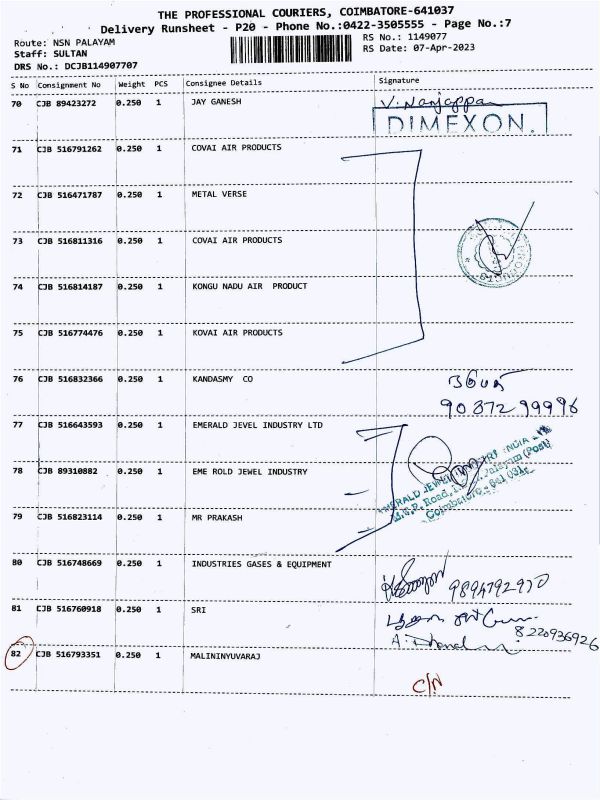 THE PROFESSIONAL COURIERS, COIMBATORE-641037
Delivery Runsheet - P20 - Phone No.:0422-3505555 - Page No.:7
Route: NSN PALAYAM
RS No.: 1149077
Staff: SULTAN
RS Date: 07-Apr-2023
DRS No.: DCJB114907707
S No Consignment No Weight PCS Consignee Details Signature
70 CJB 89423272 0.250 1 JAY GANESH V. Nanjappan
DIMEXON.
71 CJB 516791262 0.250 1 COVAI AIR PRODUCTS
72 CJB 516471787 0.250 1 METAL VERSE
73 CJB 516811316 0.250 1 COVAI AIR PRODUCTS
74 CJB 516814187 0.250 1 KONGU NADU AIR PRODUCT
75 CJB 516774476 0.250 1 KOVAI AIR PRODUCTS
76 CJB 516832366 0.250 1 KANDASMY CO
90872 99996
77 CJB 516643593 0.250 1 EMERALD JEVEL INDUSTRY LTD
78 CJB 89310882 0.250 1 EME ROLD JEWEL INDUSTRY
EMERALD JEWEL INDIA
Coimbatore - 641 031.
79 CJB 516823114 0.250 1 MR PRAKASH
80 CJB 516748669 0.250 1 INDUSTRIES GASES & EQUIPMENT
81 CJB 516760918 0.250 1 SRI
8220936926
82 CJB 516793351 0.250 1 MALININYUVARAJ
C/N